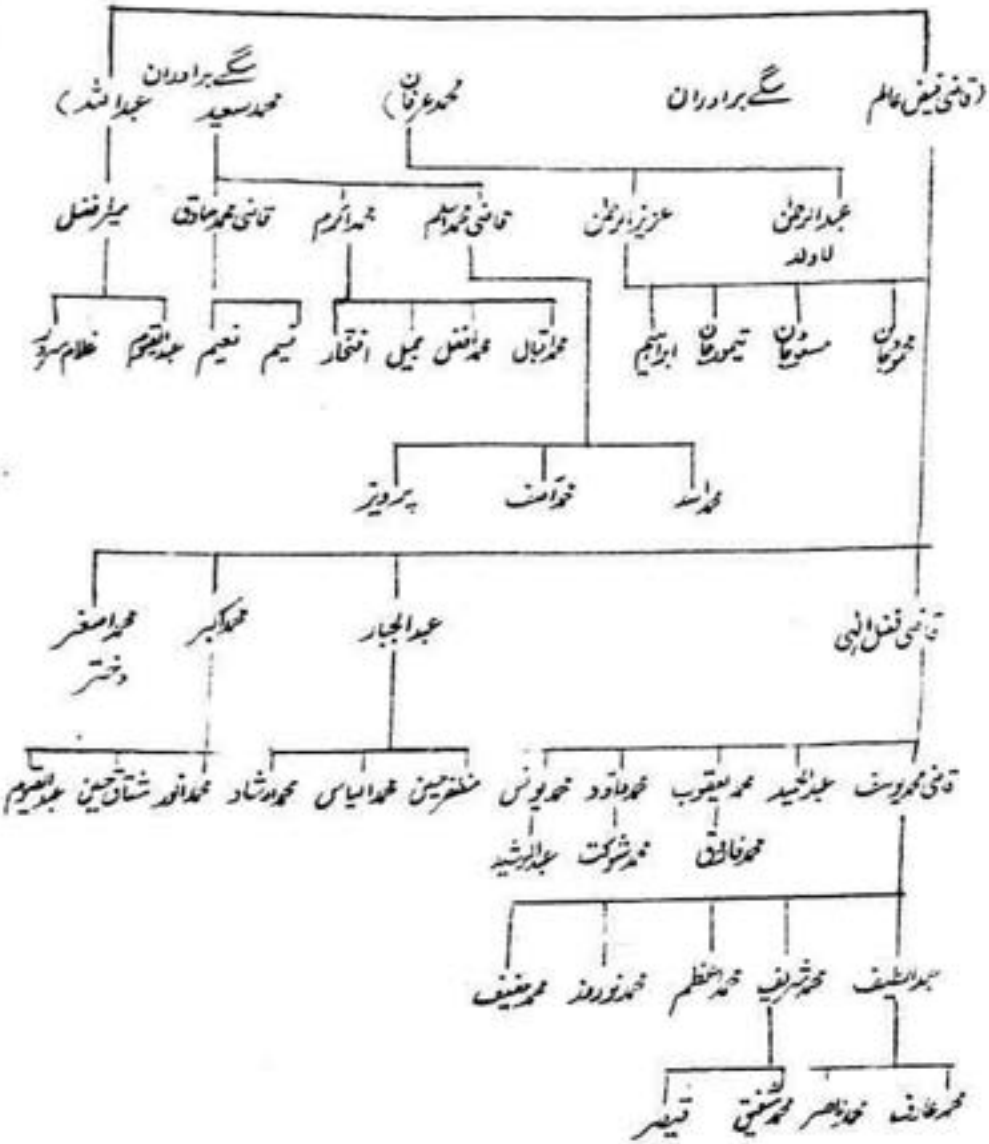 (قاضی فیض عالم سگے برادران محمد عرفان) محمد سعید سگے برادران عبداللہ)
عبدالرحمٰن عزیز الرحمٰن قاضی محمد اسلم محمد اکرم قاضی محمد صادق میر افضل
لاولد
محمود خان مسعود خان تیمور خان ابراہیم محمد اقبال محمد افضل جمیل افتخار نسیم نعیم عبدالقیوم غلام سرور
محمد اسد محمد آصف پرویز
قاضی فضل الٰہی عبدالجبار محمد اکبر محمد اصغر
دختر
قاضی محمد یوسف عبدالحمید محمد یعقوب محمد داؤد محمد یونس مظفر حسین محمد الیاس محمد ارشاد محمد انور مشتاق حسین عبدالقیوم
محمد فاروق محمد شوکت عبدالرشید
عبداللطیف محمد شریف محمد اعظم محمد نورمند محمد حفیف
محمد عارف محمد ناصر محمد شفیق قیصر